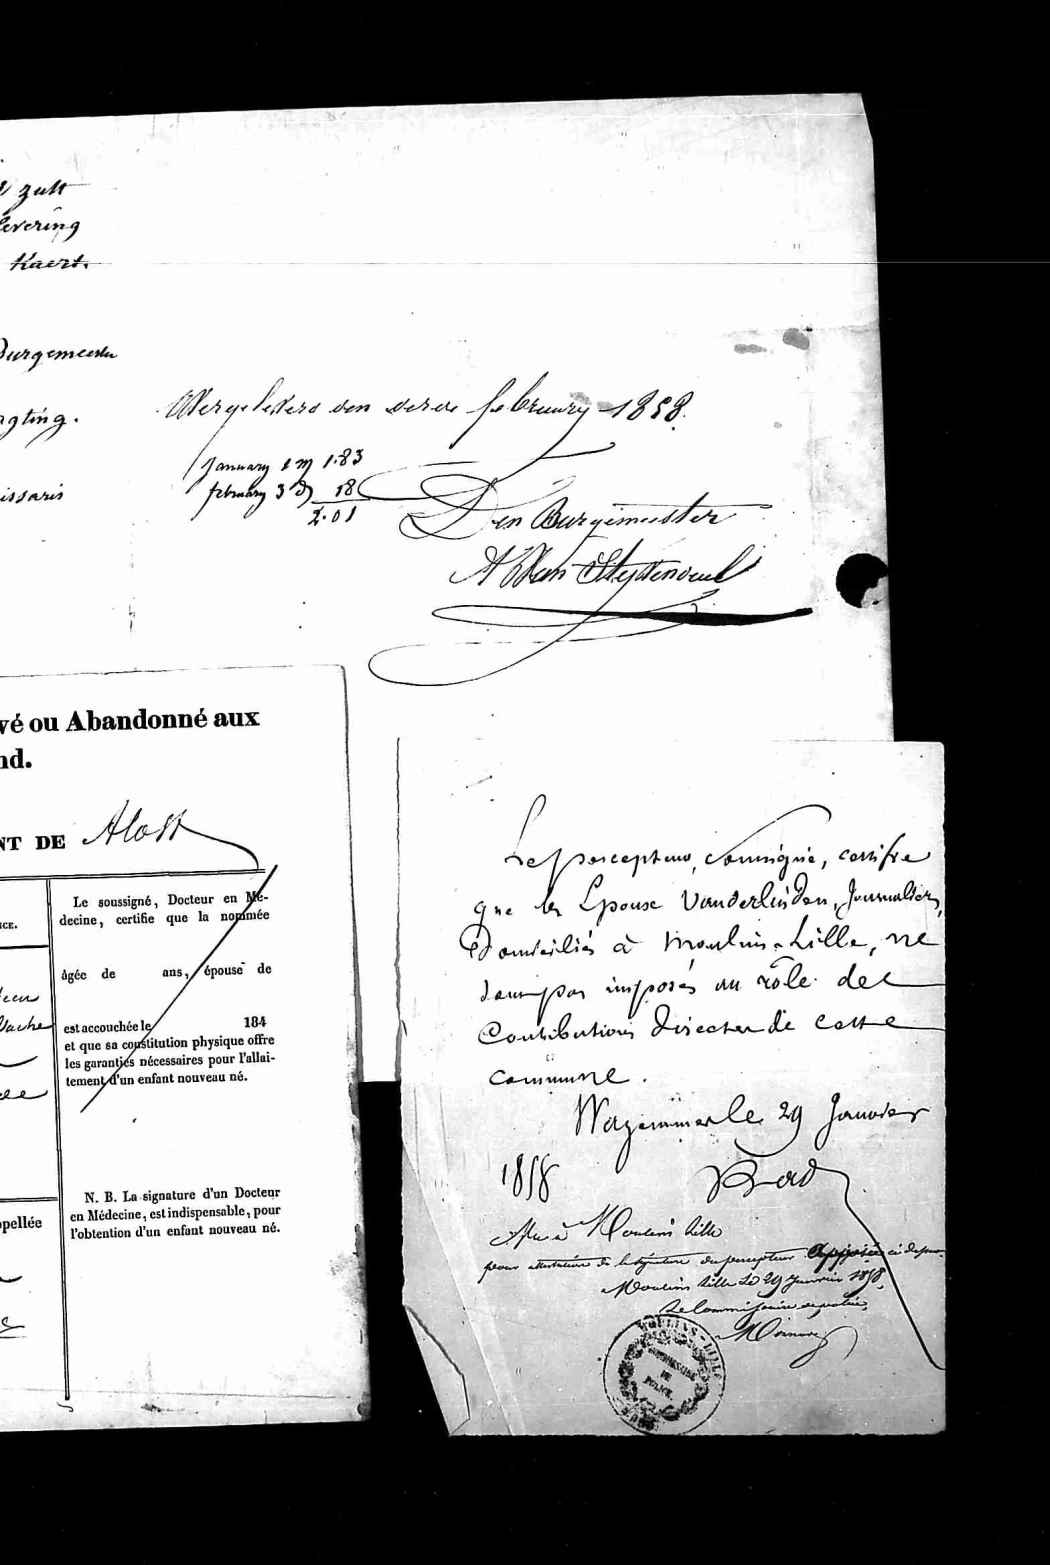 zult
levering
Kaert.
Burgemeester
agting.
issaris
Overgeleverd den derde february 1858.
January 1 m 1.83
february 3 d 18
2.01
Den Burgemeester
A Van
vé ou Abandonné aux
nd.
NT DE Alost
CE.
ppellée
Le soussigné, Docteur en Mé-
decine, certifie que la nommée
âgée de ans, épouse de
est accouchée le 184
et que sa constitution physique offre
les garanties nécessaires pour l'allai-
tement d'un enfant nouveau né.
N. B. La signature d'un Docteur
en Médecine, est indispensable, pour
l'obtention d'un enfant nouveau né.
Le percepteur, soussigné, certifie
que les Epoux Vanderlinden, Journaliers,
Domiciliés à Moulins-Lille, ne
sont pas imposés au rôle des
Contributions Directes de cette
commune.
Wazemmes le 29 Janvier
1858
Vu à Moulins Lille
pour attestation de la signature du percepteur apposée ci dessus
Moulins Lille le 29 Janvier 1858,
Le Commissaire de police,
MOULINS-LILLE
COMMISSAIRE
DE
POLICE